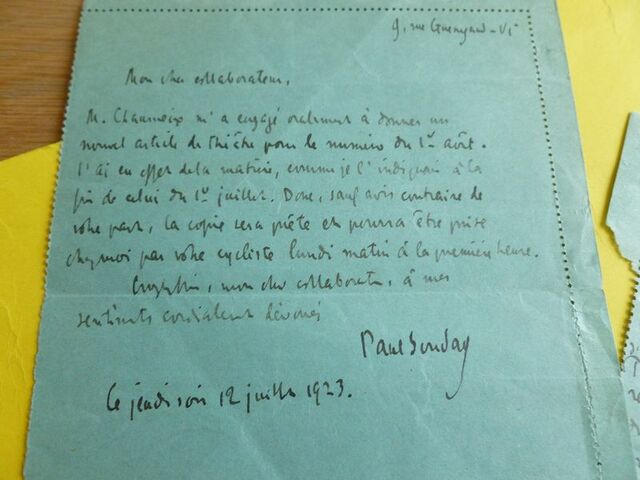 9, rue Guénégaud - VIe
Mon cher collaborateur,
M. Chaumeix m'a engagé oralement à donner un
nouvel article de théâtre pour le numéro du 1er août.
J'ai en effet de la matière, comme je l'indiquais à la
fin de celui du 1er juillet. Donc, sauf avis contraire de
votre part, la copie sera prête et pourra être prise
chez moi par votre cycliste lundi matin à la première heure.
Croyez bien, mon cher collaborateur, à mes
sentiments cordialement dévoués
Paul Souday
Ce jeudi soir 12 juillet 1923.